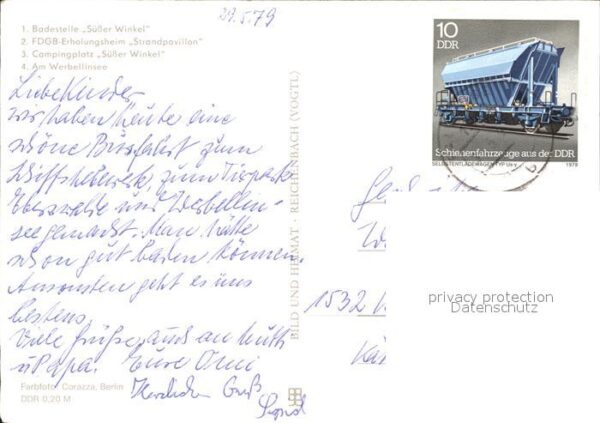 29.5.79
1. Badestelle „Süßer Winkel"
2. FDGB-Erholungsheim „Strandpavillon"
3. Campingplatz „Süßer Winkel"
4. Am Werbellinsee
Liebe Kinder
wir haben heute eine
schöne Busfahrt zum
Schiffshebewerk, zum Tierpark
Eberswalde und Werbellin-
see gemacht. Man hätte
schon gut baden können.
Ansonsten geht es uns
bestens.
Viele Grüße auch an Mutti
u Papa. Eure Omi
Herzlichen Gruß
Farbfoto Corazza, Berlin
DDR 0,20 M
BILD UND HEIMAT · REICHENBACH (VOGTL)
10
DDR
Schienenfahrzeuge aus der DDR
SELBSTENTLADEWAGEN TYP Us-y
1979
1532
privacy protection
Datenschutz